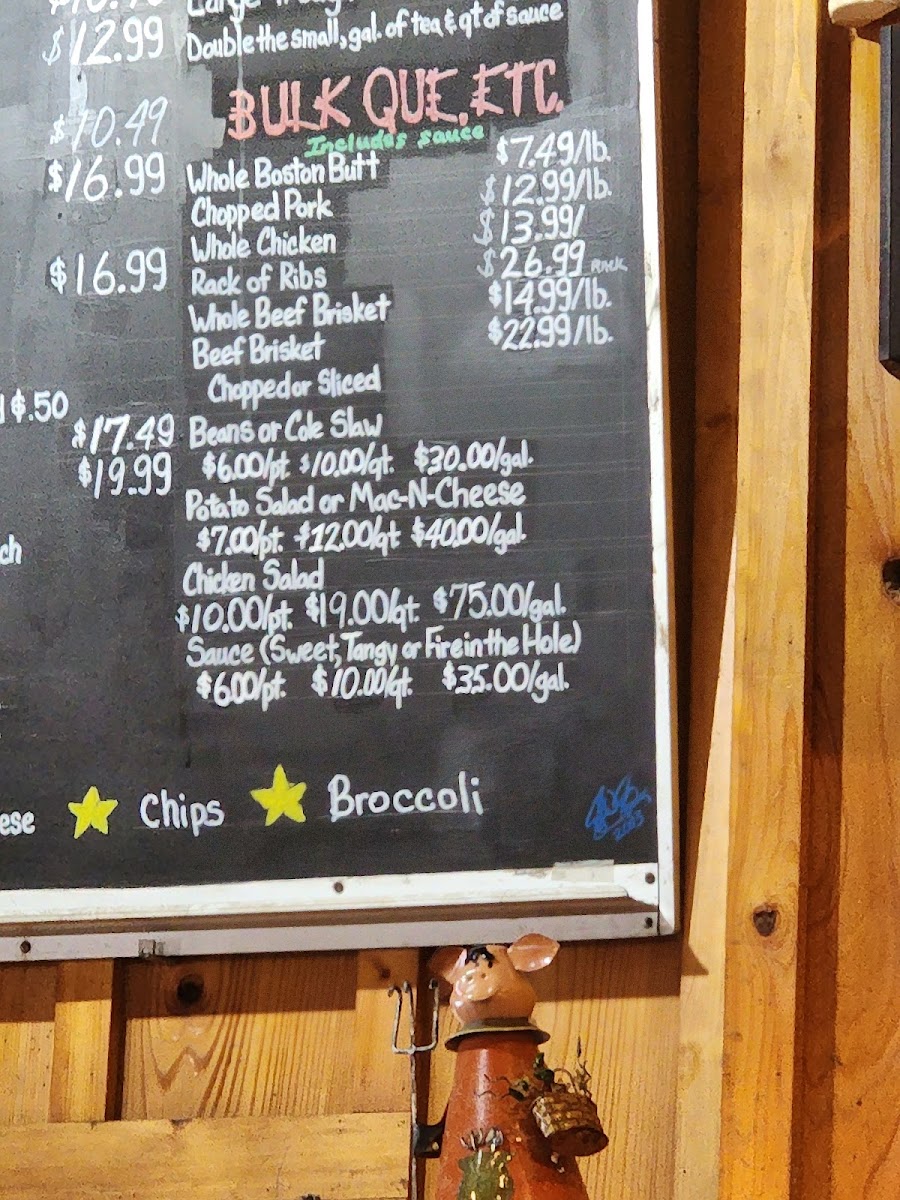 $12.99
Double the small, gal. of tea & qt of sauce
BULK QUE, ETC.
Includes sauce
$10.49
$16.99
Whole Boston Butt $7.49/lb.
Chopped Pork $12.99/lb.
Whole Chicken $13.99/
$16.99
Rack of Ribs $26.99 RACK
Whole Beef Brisket $14.99/lb.
Beef Brisket $22.99/lb.
Chopped or Sliced
$.50
$17.49
Beans or Cole Slaw
$19.99
$6.00/pt. $10.00/qt. $30.00/gal.
Potato Salad or Mac-N-Cheese
$7.00/pt. $12.00/qt $40.00/gal.
ch
Chicken Salad
$10.00/pt. $19.00/qt. $75.00/gal.
Sauce (Sweet, Tangy or Fire in the Hole)
$6.00/pt. $10.00/qt. $35.00/gal.
ese Chips Broccoli